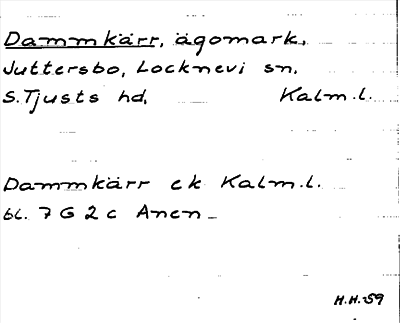 Dammkärr, ägomark,
Juttersbo, Locknevi sn,
S. Tjusts hd, Kalm.l.
Dammkärr ek Kalm.l.
bl. 7 G 2 c Anen
H.H.-59